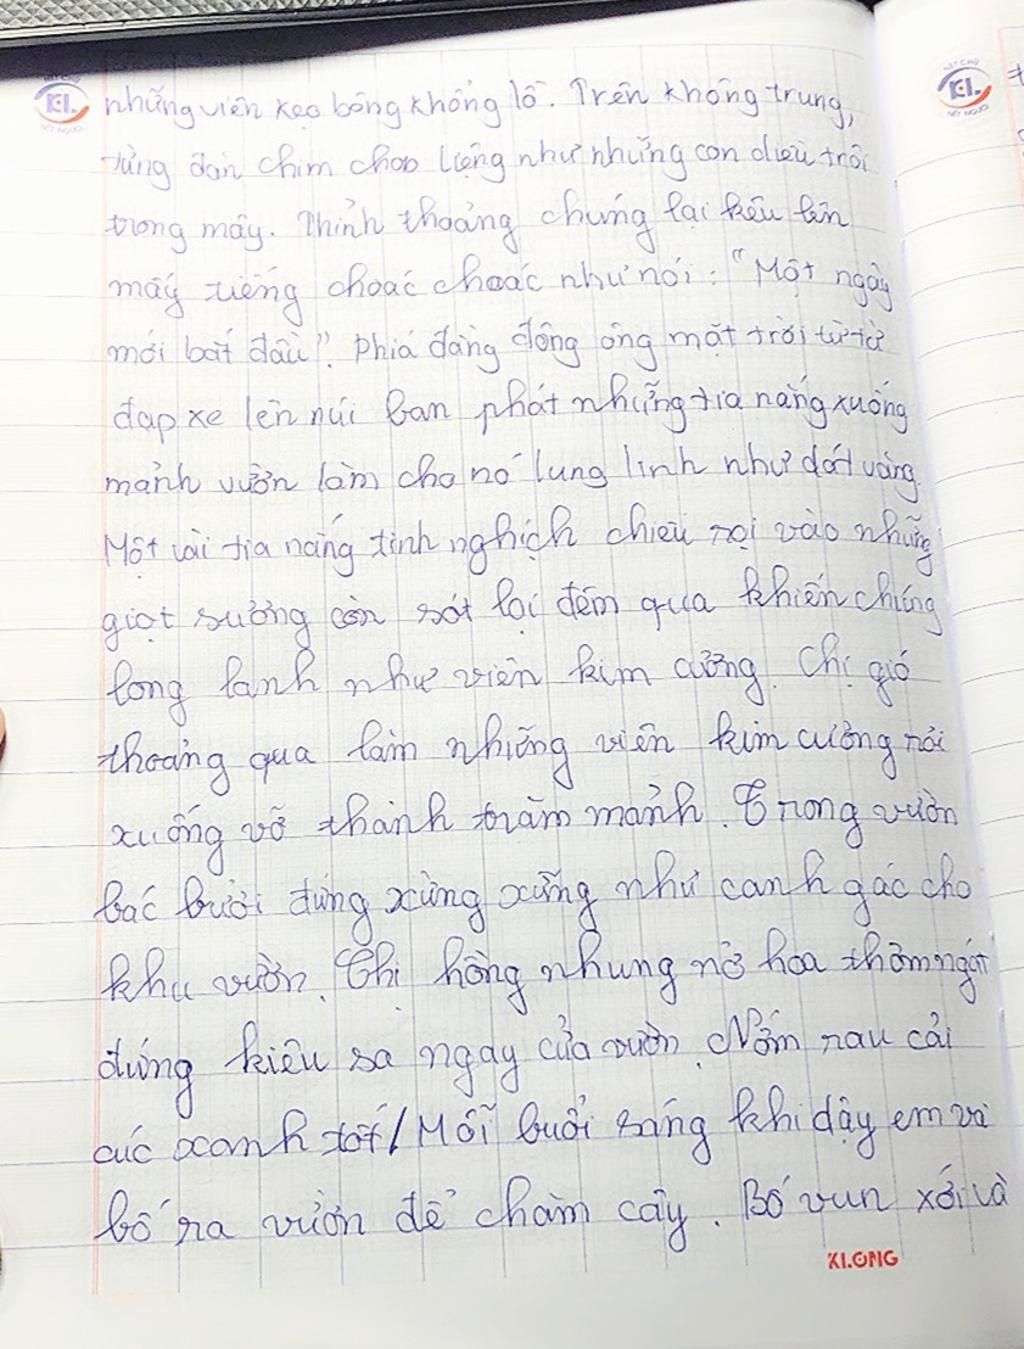 những viên kẹo bông khổng lồ. Trên không trung,
từng đàn chim chao liệng như những con diều trôi
trong mây. Thỉnh thoảng chúng lại kêu lên
mấy tiếng choác choác như nói: "Một ngày
mới bắt đầu". Phiá đằng đông ông mặt trời từ từ
đạp xe lên núi ban phát những tia nắng xuống
mảnh vườn làm cho nó lung linh như dát vàng.
Một vài tia nắng tinh nghịch chiếu rọi vào những
giọt sương còn sót lại đêm qua khiến chúng
long lanh như viên kim cương. Chị gió
thoảng qua làm những viên kim cương rơi
xuống vỡ thành trăm mảnh. Trong vườn
bác bưởi đứng sừng sững như canh gác cho
khu vườn. Chị hồng nhung nở hoa thơm ngát
đứng kiêu sa ngay cửa vườn. Nớm rau cải
cúc xanh tốt/ Mỗi buổi sáng khi dậy em và
bố ra vườn để chăm cây. Bố vun xới và
KLONG